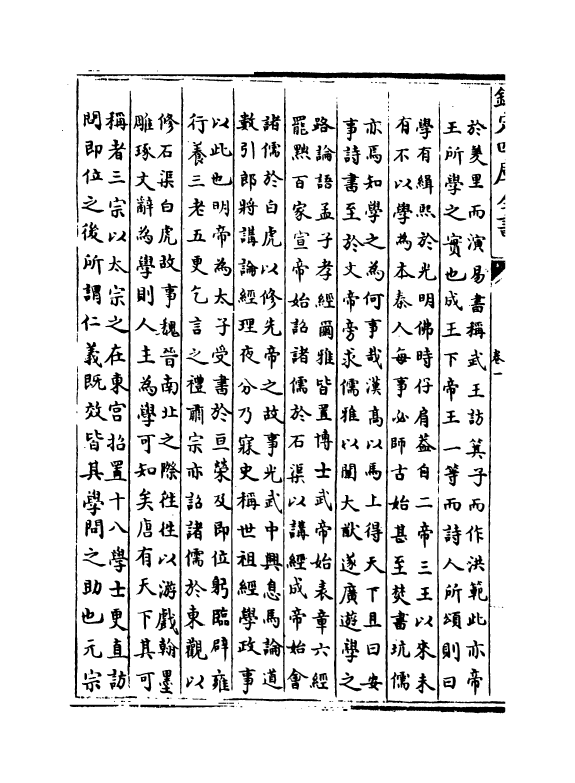 欽定四庫全書
卷一
於羑里而演易書稱武王訪箕子而作洪範此亦帝
王所學之實也成王下帝王一等而詩人所頌則曰
學有緝熙於光明佛時仔肩葢自二帝三王以來未
有不以學為本秦人每事必師古始甚至焚書坑儒
亦焉知學之為何事哉漢高以馬上得天下且曰安
事詩書至於文帝旁求儒雅以闡大猷遂廣遊學之
路論語孟子孝經爾雅皆置博士武帝始表章六經
罷黜百家宣帝始詔諸儒於石渠以講經成帝始會
諸儒於白虎以修先帝之故事光武中興息馬論道
數引郎將講論經理夜分乃寐史稱世祖經學政事
以此也明帝為太子受書於亘榮及即位躬臨辟雍
行養三老五更乞言之禮肅宗亦詔諸儒於東觀以
修石渠白虎故事魏晉南北之際往往以游戲翰墨
雕琢文辭為學則人主為學可知矣唐有天下其可
稱者三宗以太宗之在東宫招置十八學士更直訪
問即位之後所謂仁義既效皆其學問之助也元宗